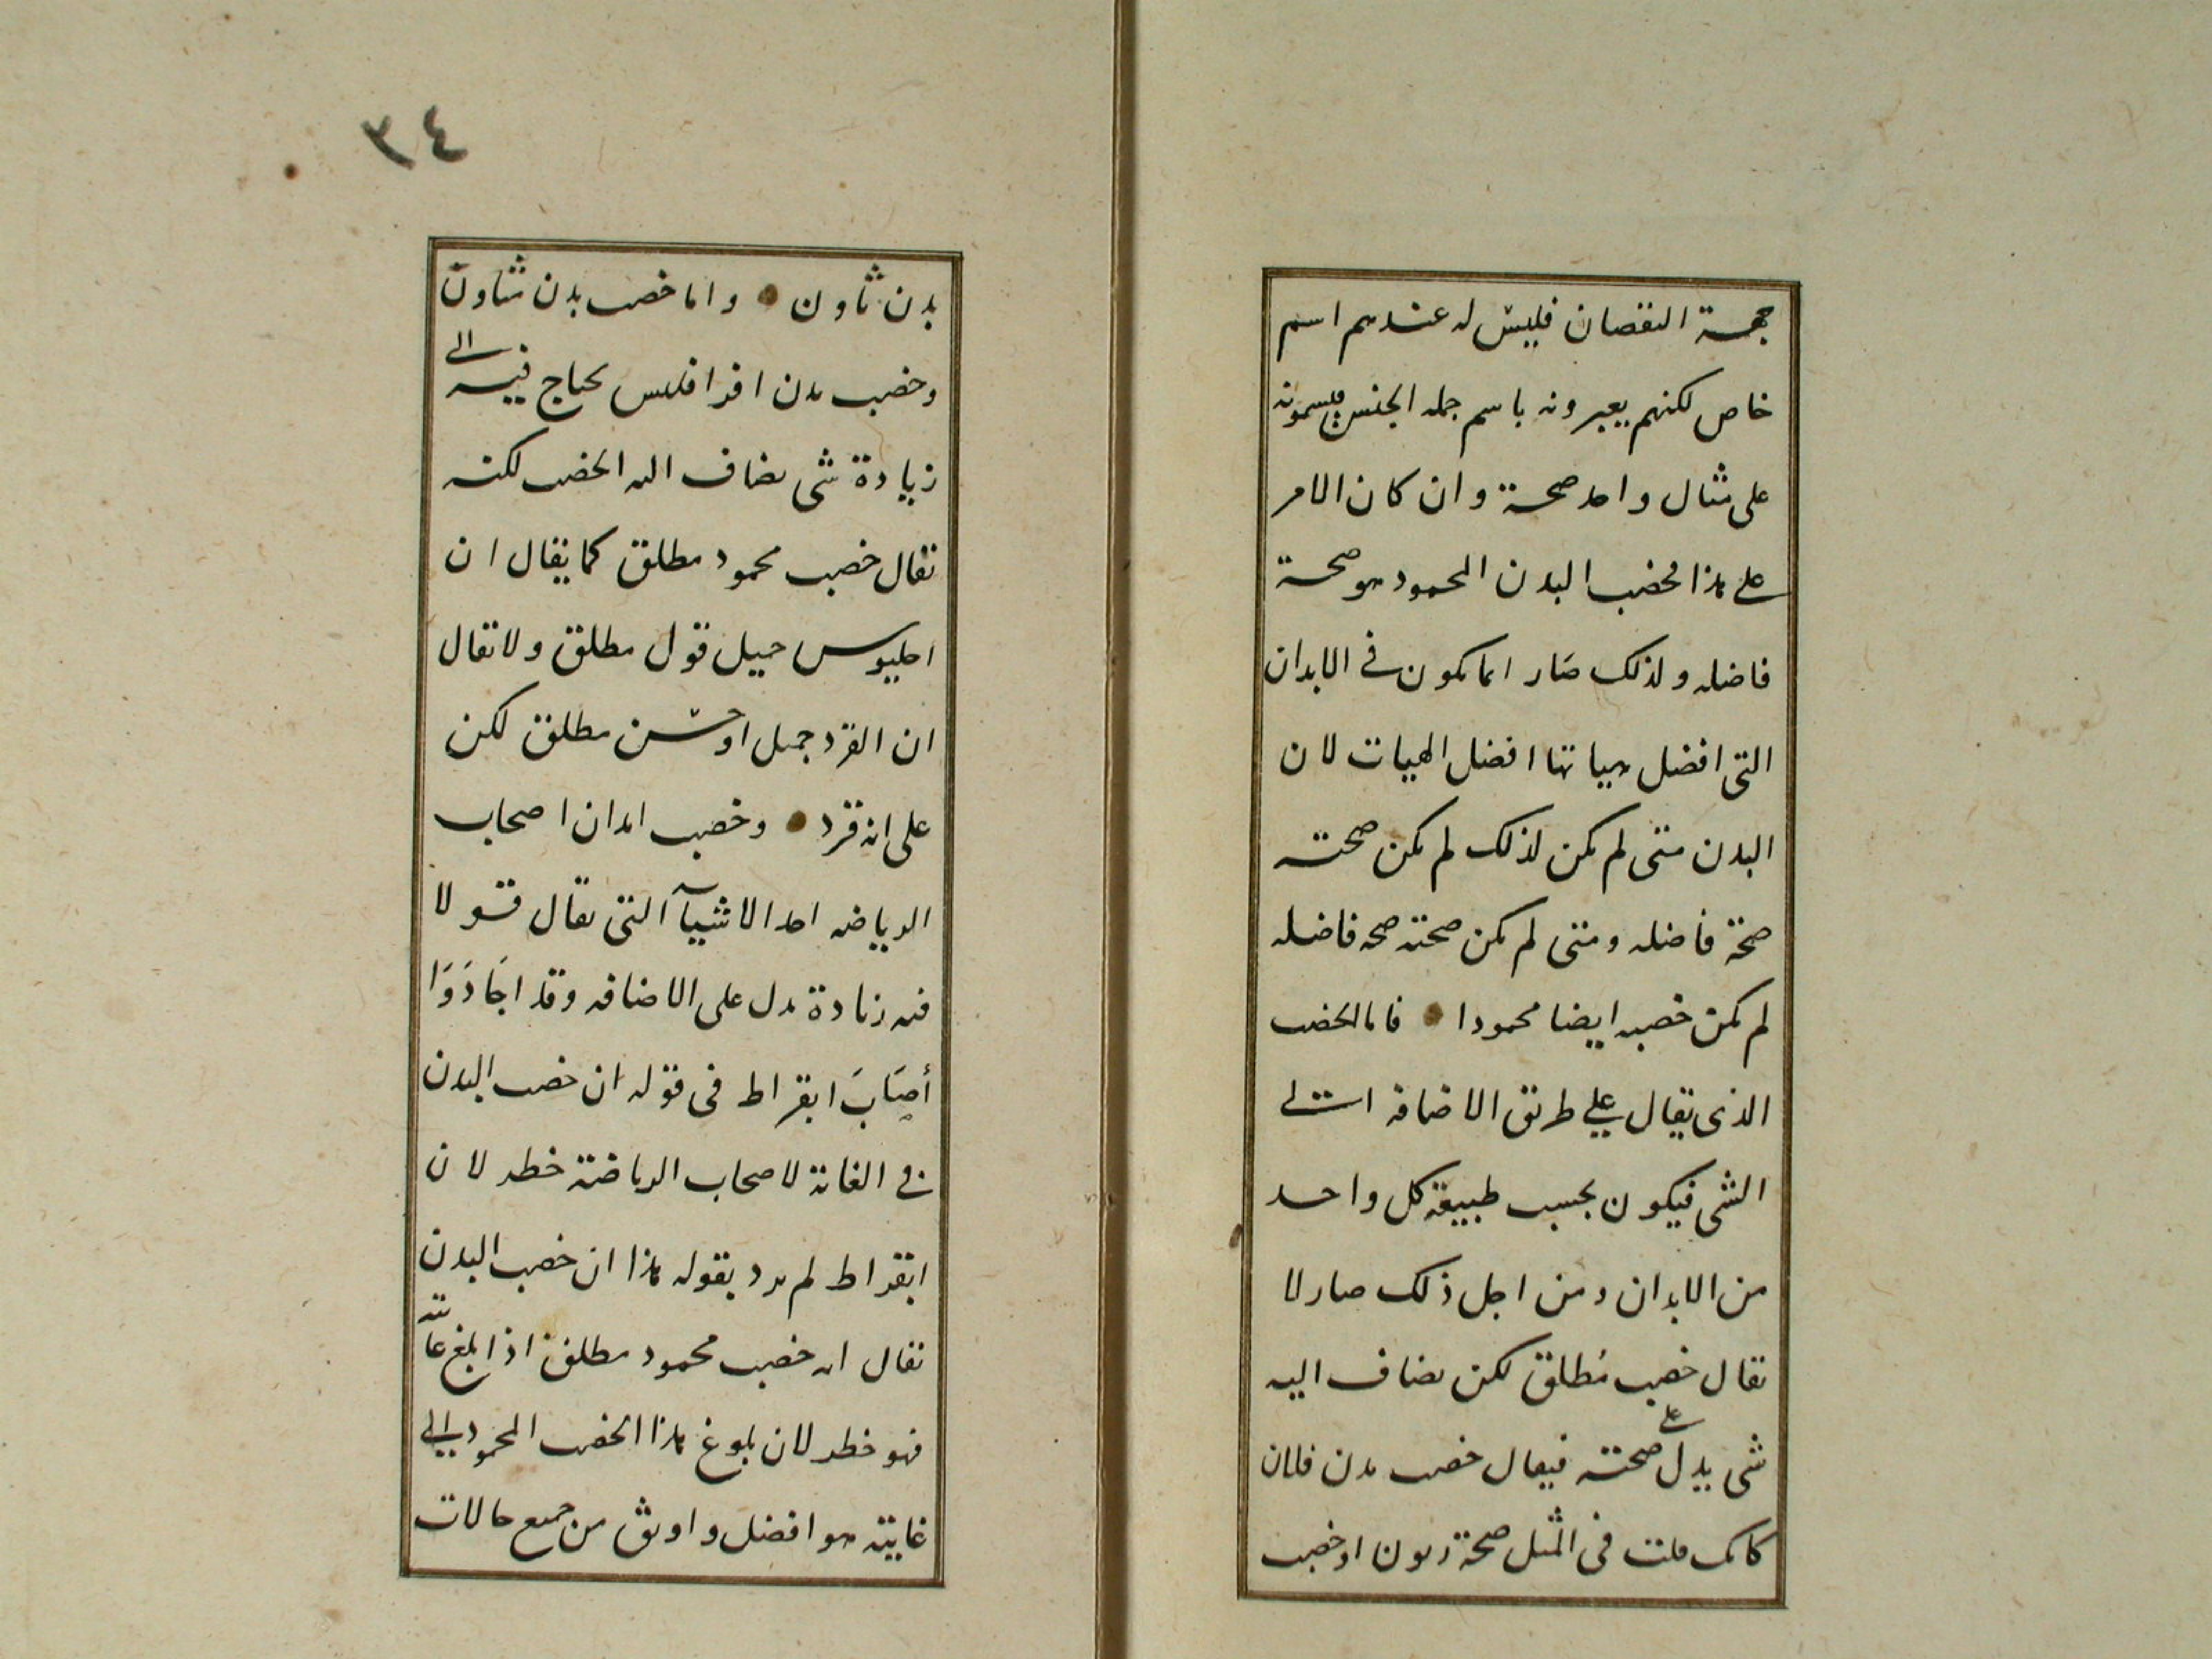 جهة النقصان فليس له عندهم اسم
خاص لكنهم يعبرونه باسم جمله الجنس فيسمونه
على مثال واحد صحة وان كان الامر
على هذا فخصب البدن المحمود هو صحة
فاضله ولذلك صار انما يكون في الابدان
التى افضل هياتها افضل الهيات لان
البدن متى لم يكن لذلك لم يكن صحته
صحة فاضله ومتى لم يكن صحته صحه فاضله
لم يكن خصبه ايضا محمودا • فاما الخصب
الذى يقال على طريق الاضافة الى
الشى فيكون بحسب طبيعة كل واحد
من الابدان ومن اجل ذلك صار لا
يقال خصب مُطلق لكن يضاف اليه
شى يدل على صحته فيقال خصب بدن فلان
كانك قلت فى المثل صحة زيون او خصب
٤٣
بدن ثاون • واما خصب بدن ثاون
وخصب بدن اقراقلس يحتاج فيه الى
زيادة شى يضاف اليه الخصب لكنه
يقال خصب محمود مطلق كما يقال ان
احليوس جميل قول مطلق ولا يقال
ان القرد جميل او حسن مطلق لكن
على انه قرد • وخصب ابدان اصحاب
الرياضه احد الاشيآ التى يقال قولا
فيه زيادة يدل على الاضافه وقد اجَادَوَا
أصَابَ ابقراط فى قوله ان خصب البدن
في الغاية لاصحاب الرياضة خطر لان
ابقراط لم يرد بقوله هذا ان خصب البدن
يقال انه خصب محمود مطلق اذا بلغ غايته
فهو خطر لان بلوغ هذا الخصب المحمود الى
غايته هو افضل واوثق من جميع حالات